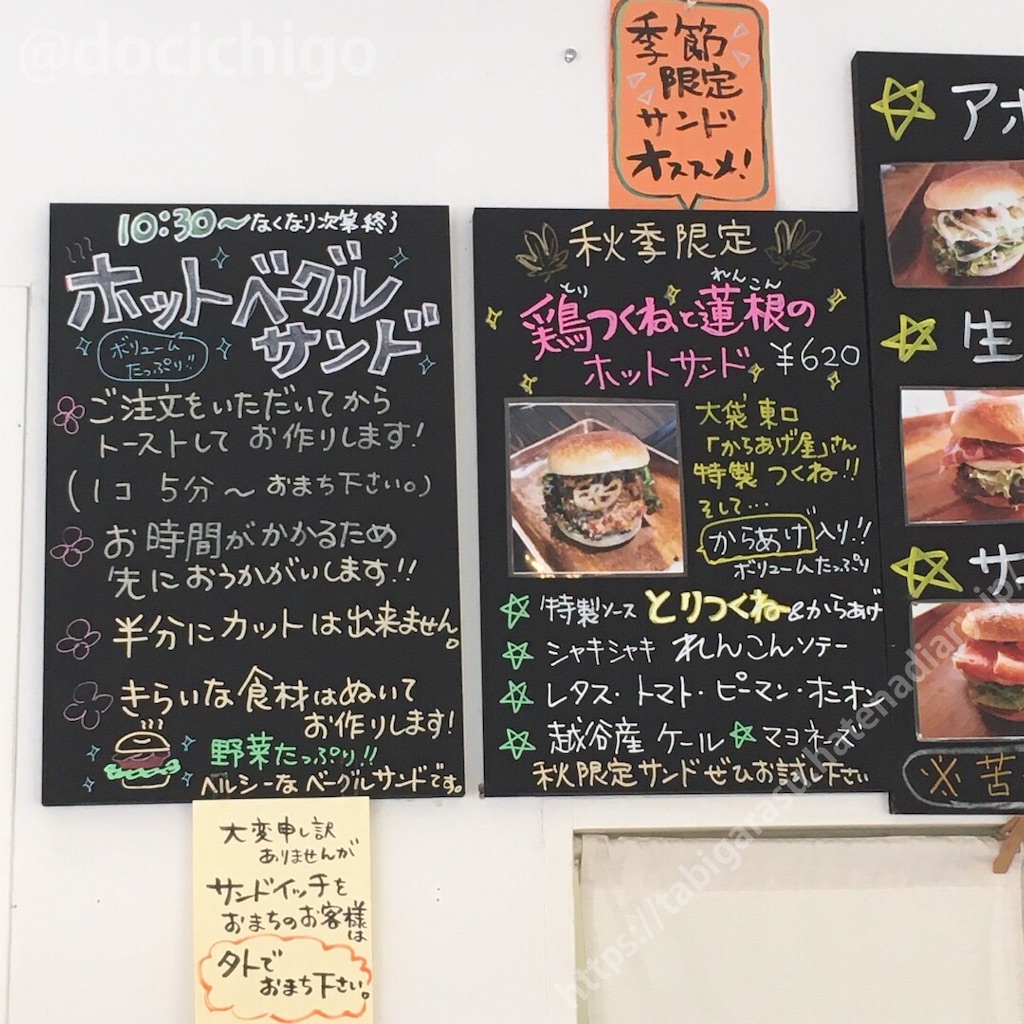 @docichigo
季節
限定
サンド
オススメ!
10:30〜なくなり次第終了
ホットベーグル
サンド
ボリューム
たっぷり!!
ご注文をいただいてから
トーストして お作りします!
(1コ 5分〜 おまち下さい。)
お時間がかかるため
先におうかがいします!!
半分にカットは出来ません。
きらいな食材はぬいて
お作りします!
野菜たっぷり!!
ヘルシーなベーグルサンドです。
大変申し訳
ありませんが
サンドイッチを
おまちのお客様
は
外で
おまち下さい。
秋季限定
とり れんこん
鶏つくねと蓮根の
ホットサンド ¥620
大袋東口
「からあげ屋」さん
特製つくね!!
そして…
からあげ入り!!
ボリュームたっぷり
特製ソース とりつくね&からあげ
シャキシャキ れんこんソテー
レタス・トマト・ピーマン・オニオン
越谷産 ケール ☆マヨネーズ
秋限定サンドぜひお試し下さい
☆ アボ
☆ 生
☆ サ
※苦